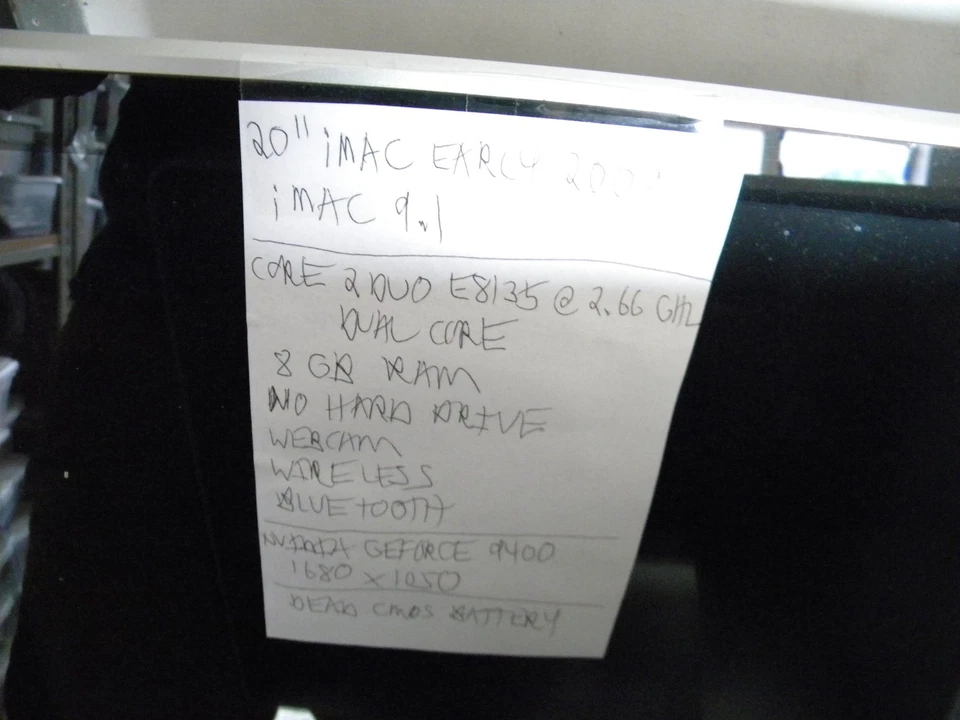 20" iMAC EARLY
iMAC 9.1
CORE 2 DUO E8135 @ 2.66 GHZ
DUAL CORE
8 GB RAM
NO HARD DRIVE
WEBCAM
WIRELESS
BLUETOOTH
NVIDIA GEFORCE 9400
1680 x 1050
DEAD CMOS BATTERY